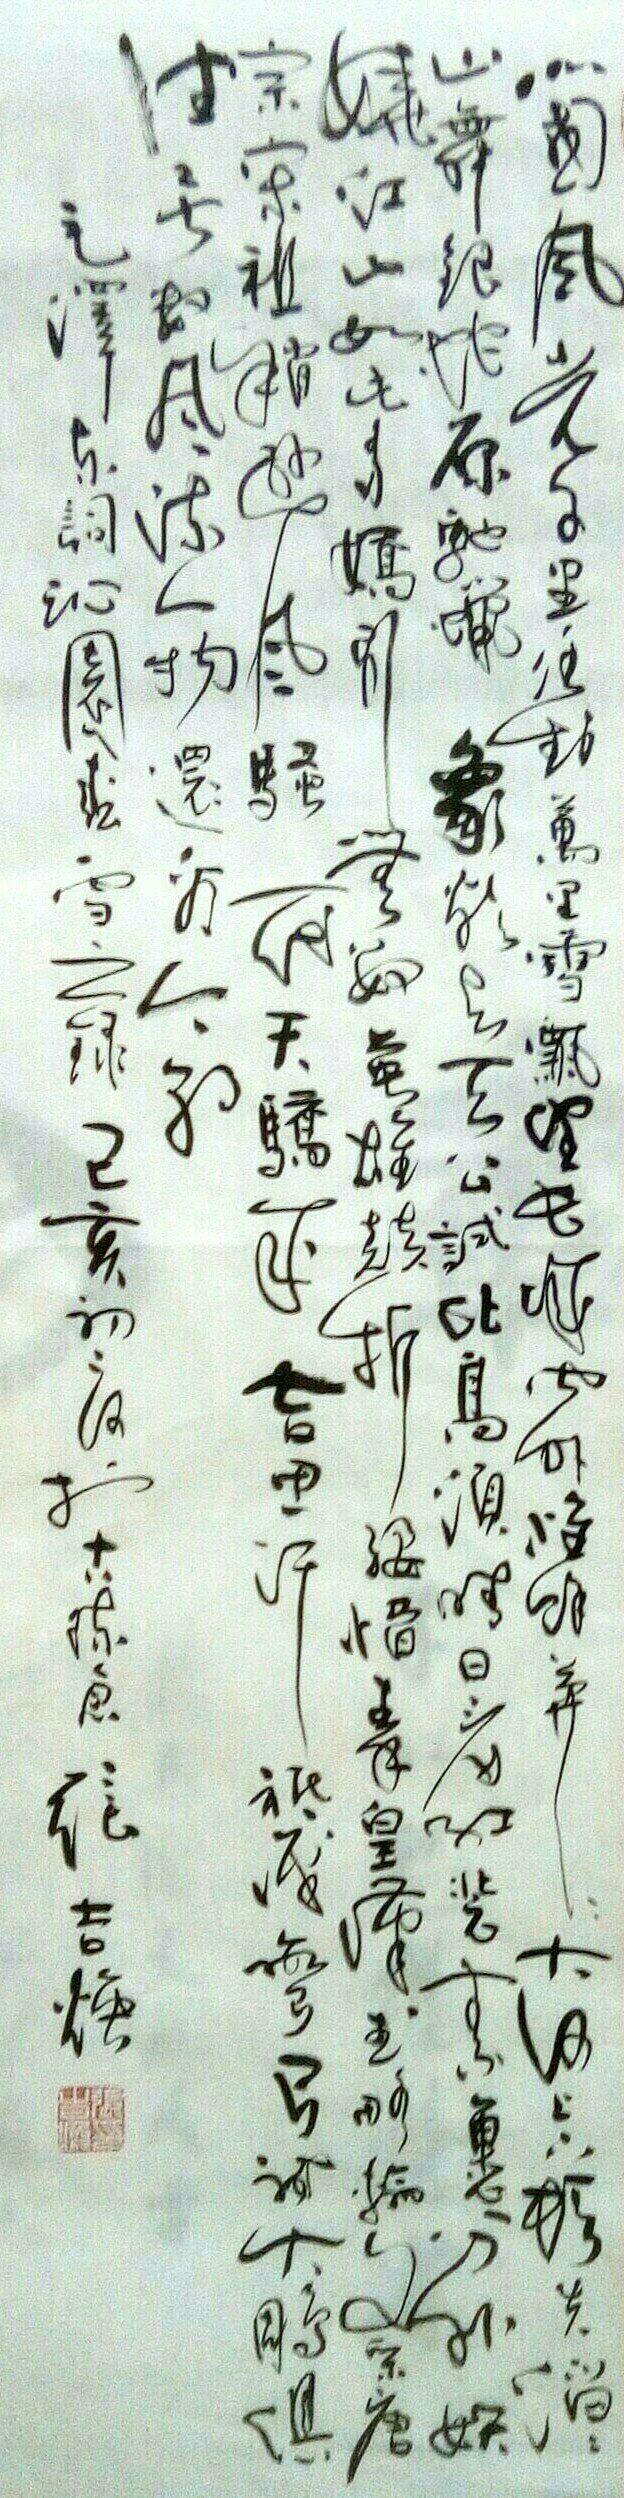 北國風光千里冰封萬里雪飄望長城內外惟餘莽莽大河上下頓失滔滔
山舞銀蛇原馳蠟象欲與天公試比高須晴日看紅裝素裹分外妖
嬈江山如此多嬌引無數英雄競折腰惜秦皇漢武略輸文采唐
宗宋祖稍遜風騷一代天驕成吉思汗祇識彎弓射大鵰俱
往矣數風流人物還看今朝
毛澤東詞沁園春雪之錄己亥初夏於古張吉